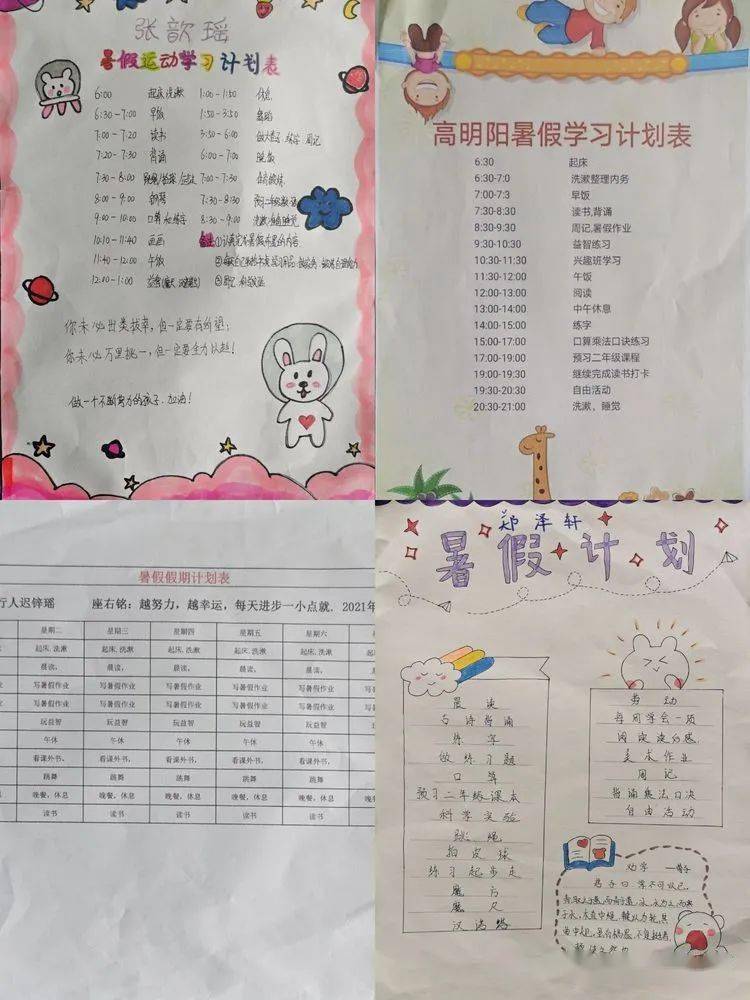 张歆瑶
暑假运动学习计划表
6:00 起床洗漱 1:00-1:50 休息
6:30-7:00 早饭 1:50-3:50
7:00-7:20 读书 3:50-6:00
7:20-7:30 背诵 6:00-7:00 晚饭
7:30-8:00 7:00-7:30
8:00-9:00 钢琴 7:30-8:30
9:00-10:00 8:30-9:00
10:10-11:40 画画
11:40-12:00 午饭
12:00-1:00
你未必出类拔萃,但一定要有所望;
你未必万里挑一,但一定要全力以赴!
做一个不断努力的孩子.加油!
高明阳暑假学习计划表
6:30 起床
6:30-7:0 洗漱整理内务
7:00-7:3 早饭
7:30-8:30 读书,背诵
8:30-9:30 周记,暑假作业
9:30-10:30 益智练习
10:30-11:30 兴趣班学习
11:30-12:00 午饭
12:00-13:00 阅读
13:00-14:00 中午休息
14:00-15:00 练字
15:00-17:00 口算乘法口诀练习
17:00-19:00 预习二年级课程
19:00-19:30 继续完成读书打卡
19:30-20:30 自由活动
20:30-21:00 洗漱、睡觉
暑假假期计划表
行人迟锌瑶 座右铭:越努力,越幸运,每天进步一小点就. 2021年
星期二 星期三 星期四 星期五 星期六
起床.洗漱 起床.洗漱 起床.洗漱 起床.洗漱 起床.洗漱
晨读, 晨读, 晨读, 晨读, 晨读,
写暑假作业 写暑假作业 写暑假作业 写暑假作业 写暑假作业
玩益智 玩益智 玩益智 玩益智 玩益智
午休 午休 午休 午休 午休
看课外书, 看课外书, 看课外书, 看课外书, 看课外书,
跳舞 跳舞 跳舞 跳舞 跳舞
晚餐,休息 晚餐,休息 晚餐,休息 晚餐,休息 晚餐,休息
读书 读书 读书 读书 读书
郑泽轩
暑假计划
晨读
古诗背诵
练字
做练习题
口算
预习二年级课本
科学实验
跳绳
拍皮球
练习起步走
魔方
魔尺
汉诺塔
劳动
每周学会一项
阅读读后感
美术作业
周记
背诵乘法口决
自由活动
劝学 —荀子
君子曰:学不可以已.